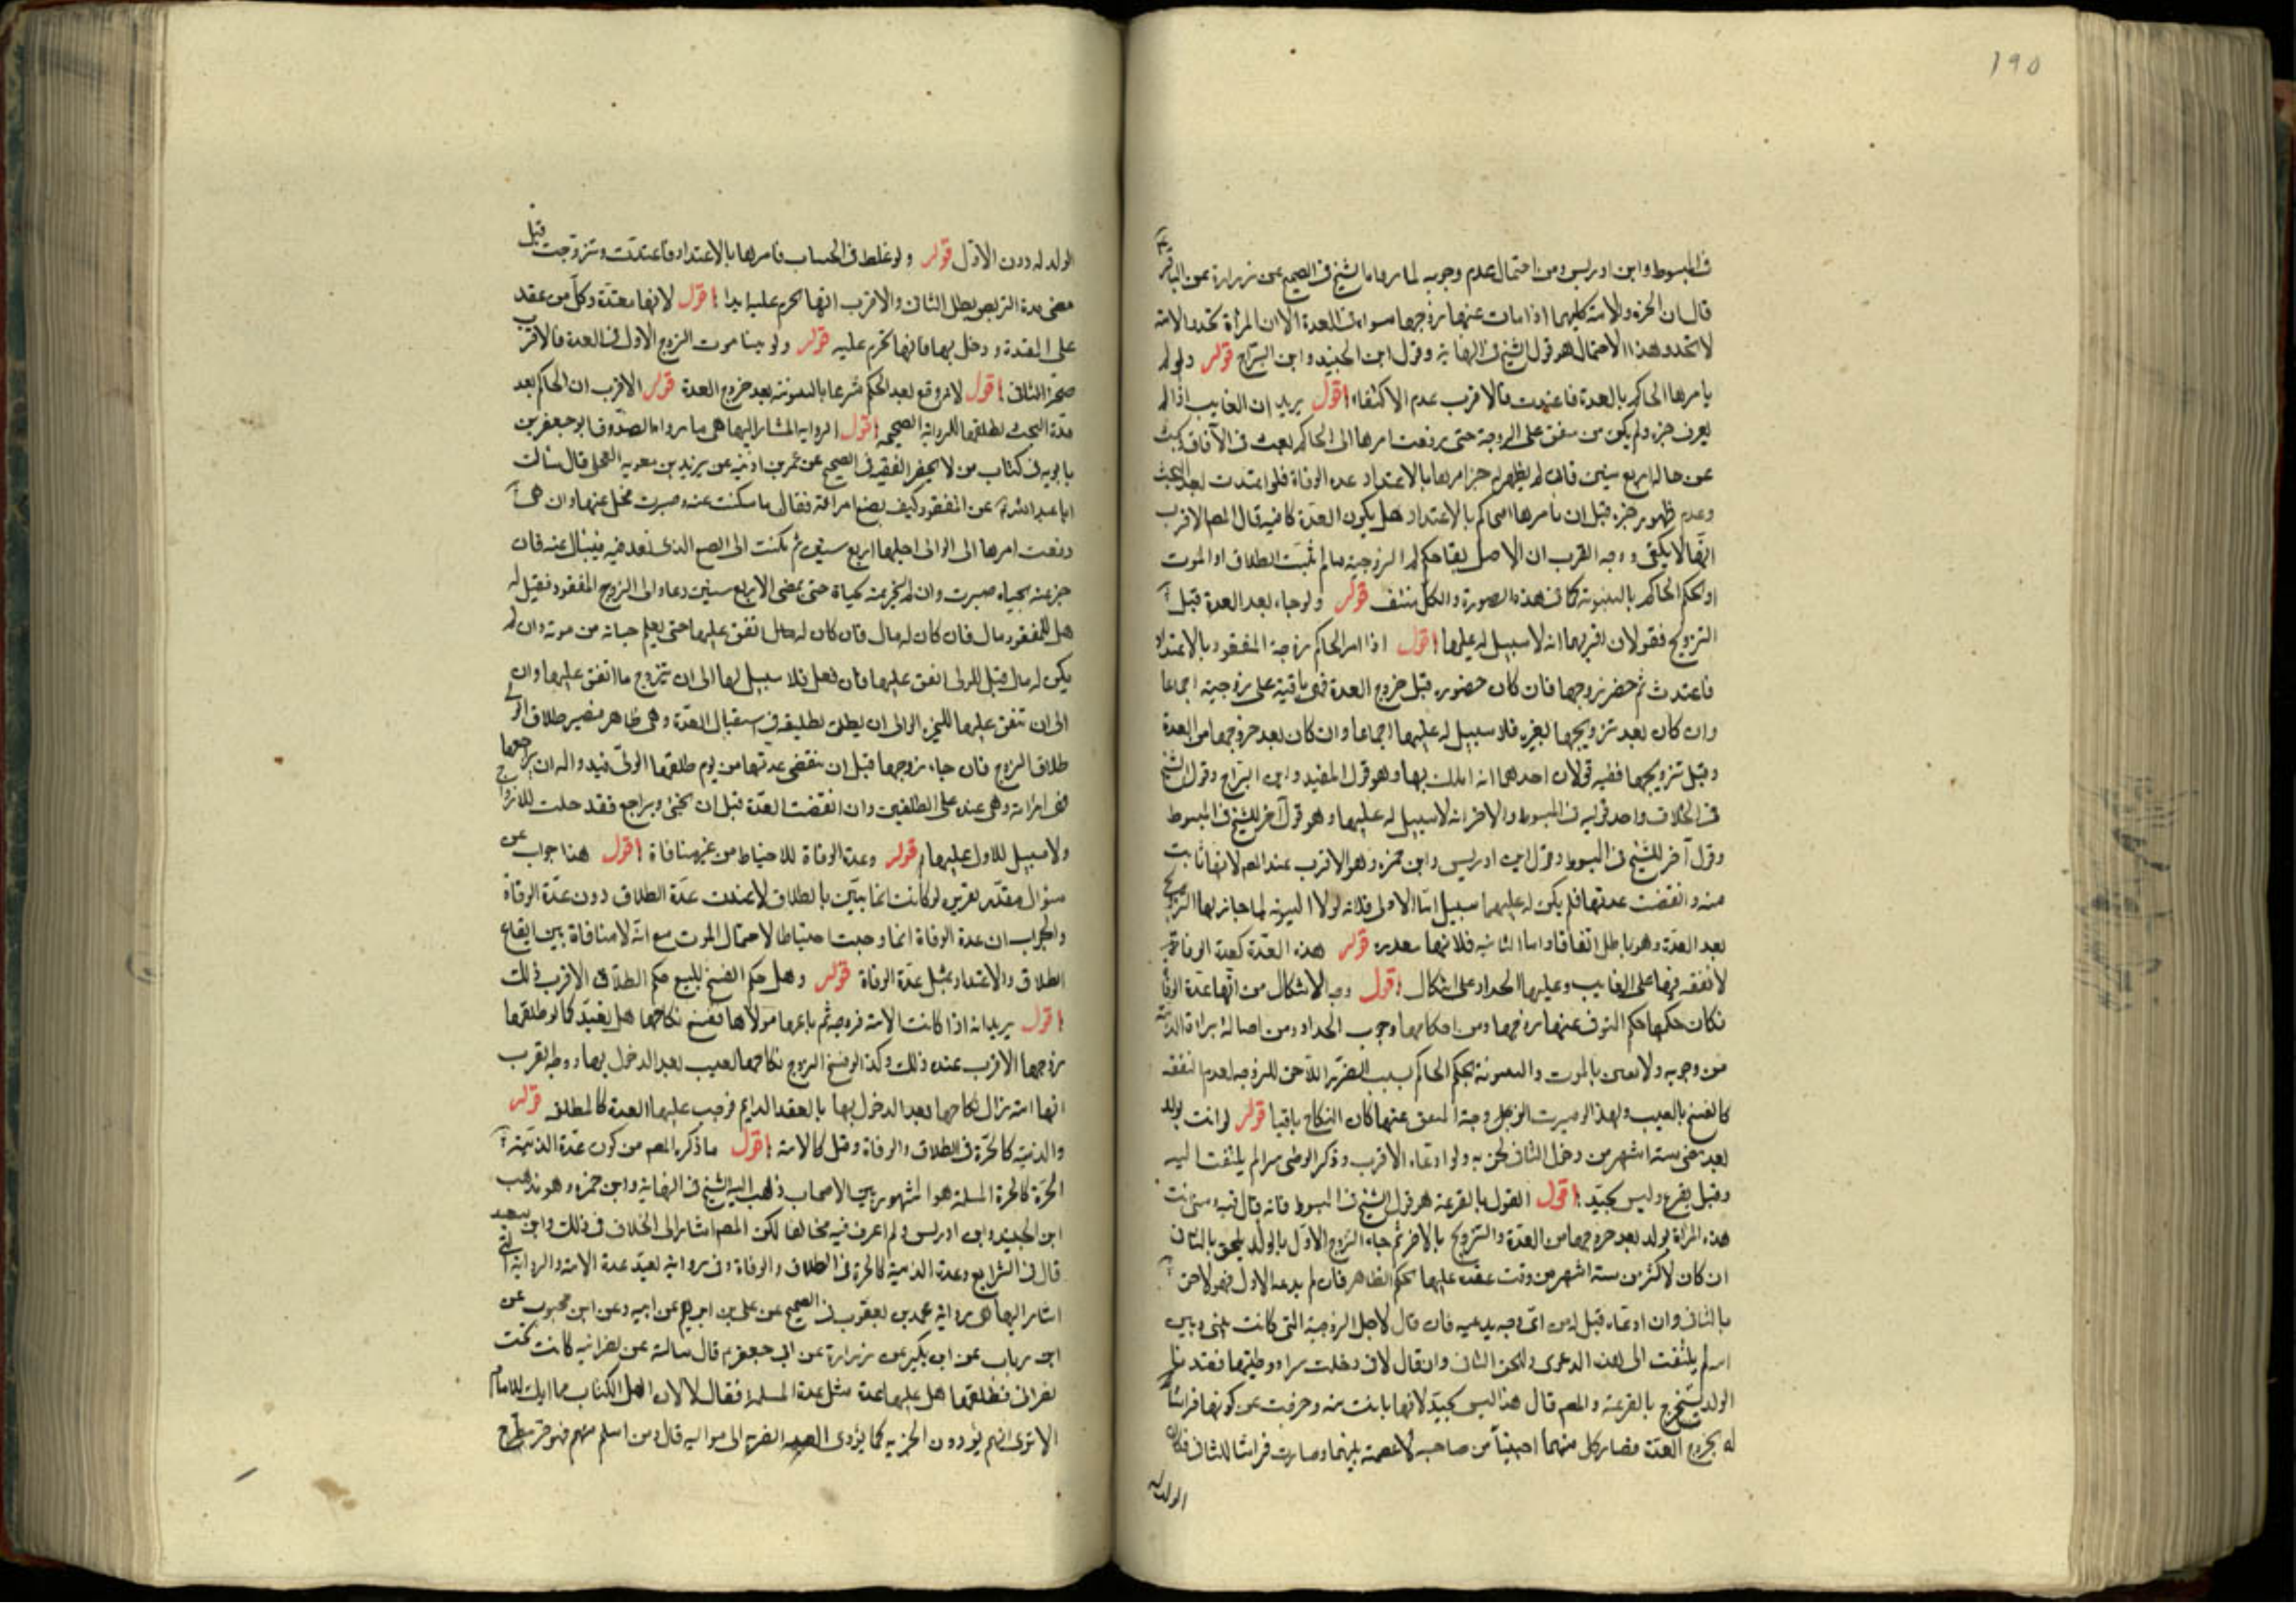 ١٩٥
في المبسوط وابن ادريس ومن احتمال عدم وجوبه لما رواه الشيخ في الصحيح عن زرارة عن الباقر ع
قال ان الحرة والامة كليهما اذا مات عنهما زوجهما سواء في العدة الا ان المراة تحد والامة
لا تحد وهذا الاحتمال هو قول الشيخ في النهاية وقول ابن الجنيد وابن السراج قوله ولو لم
يامرها الحاكم بالعدة فاعتدت فالاقرب عدم الاكتفاء اقول يريد ان الغايب اذا لم
يعرف خبره ولم يكن من ينفق على الزوجة حتى رفعت امرها الى الحاكم بعث في الآفاق يبحث
عن حاله اربع سنين فان لم يظهر له خبر امرها بالاعتداد عدة الوفاة فلو اعتدت بعد البحث
وعدم ظهور خبره قبل ان يامرها الحاكم بالاعتداد هل يكون العدة كافية قال المص الاقرب
انها لا يكفي ووجه القرب ان الاصل بقاء حكم الزوجية ما لم يثبت الطلاق او الموت
او لحكم الحاكم بالبينونة كما في هذه الصورة والكل منتف قوله ولو جاء بعد العدة قبل
التزويج فقولان اقربهما انه لا سبيل له عليها اقول اذا امر الحاكم زوجة المفقود بالاعتداد
فاعتدت ثم حضر زوجها فان كان حضوره قبل خروج العدة فهي باقية على زوجيته اجماعا
وان كان بعد تزويجها بغيره فلا سبيل له عليها اجماعا وان كان بعد خروجها من العدة
وقبل تزويجها ففيه قولان احدهما انه املك بها وهو قول المفيد وابن البراج وقول الشيخ
في الخلاف واحد قوليه في المبسوط والاخر انه لا سبيل له عليها وهو قول آخر للشيخ في المبسوط
وقول آخر للشيخ في المبسوط وقول ابن ادريس وابن حمزة وهو الاقرب عند المص لانها بانت
منه وانقضت عدتها فلم يكن له عليها سبيل اما الاولى فلانه لولا البينونة لما جاز لها التزويج
بعد العدة وهو باطل اتفاقا واما الثانية فلانها قوله هذه العدة كعدة الوفاة
لا نفقة فيها على الغايب وعليها الحداد على اشكال اقول وجه الاشكال من انها عدة الوفاة
فكان حكمها حكم المتوفى عنها زوجها ومن احكامها وجوب الحداد ومن اصالة براءة الذمة
من وجوبه ولا بالموت والبينونة بحكم الحاكم بسبب الضرر اللاحق للزوجة لعدم النفقة
كالفسخ بالعيب ولهذا لو صبرت او وجد المنفق عنها كان النكاح باقيا قوله لو اتت بولد
بعد مضي ستة اشهر من دخول الثاني لحق به ولو ادعاه الاقرب وذكر الوطي سرا لم يلتفت اليه
وقيل يقرع وليس بجيد اقول القول بالقرعة هو قول الشيخ في المبسوط فانه قال فيه ومتى اتت
هذه المراة بولد بعد خروجها من العدة والتزويج بالاخر ثم جاء الزوج الاول بالولد يلحق بالثاني
ان كان لاكثر من ستة اشهر من وقت عقده عليها بحكم الظاهر فان لم يدعه الاول فهو لاحق
بالثاني وان ادعاه قيل له من اي وجه يدعيه فان قال لاجل الزوجية التي كانت بيني وبين
امه لم يلتفت الى هذه الدعوى ولحق الثاني وان قال لاني دخلت سرا ووطيتها فعند هذا
الولد يستخرج بالقرعة والمص قال هذا ليس بجيد لانها بانت منه وخرجت عن كونها فراشا
له بخروج العدة فصار كل منهما اجنبيا من صاحبه لا عصمة بينهما وصارت فراشا للثاني فكان
الولد له
الولد له دون الاول قوله ولو غلط في الحساب فامرها بالاعتداد فاعتدت وتزوجت قبل
مضي مدة التربص بطل الثاني والاقرب انها تحرم عليه ابدا اقول لانها معتدة وكل من عقد
على المعتدة ودخل بها فانها تحرم عليه قوله ولو بينا موت الزوج الاول في العدة فالاقرب
صحة الثاني اقول لانه وقع بعد الحكم شرعا بالبينونة بعد خروج العدة قوله الاقرب ان الحاكم بعد
مدة البحث يطلقها للرواية الصحيحة اقول الرواية المشار اليها هي ما رواه الصدوق ابو جعفر بن
بابويه في كتاب من لا يحضره الفقيه في الصحيح عن عمر بن اذينة عن بريد بن معوية العجلي قال سالت
ابا عبد الله ع عن المفقود كيف يصنع امراته فقال ما سكتت عنه وصبرت يخلى عنها وان هي
رفعت امرها الى الوالي اجلها اربع سنين ثم يكتب الى الصقع الذي فقد فيه فيسال عنه فان
خبر عنه بحياة صبرت وان لم يخبر عنه بحياة حتى يمضي الاربع سنين دعا ولي الزوج المفقود فقيل له
هل للمفقود مال فان كان له مال فان كان له مال انفق عليها حتى يعلم حياته من موته وان لم
يكن له مال قيل للولي انفق عليها فان فعل فلا سبيل لها الى ان تتزوج ما انفق عليها وان
الى ان تنفق عليها الوالي ان يطلق تطليقة في استقبال العدة وهي طاهر فيصير طلاق الولي
طلاق الزوج فان جاء زوجها قبل ان تنقضي عدتها من يوم طلقها الولي فبدا له ان يراجعها
فهي امراته وهي عنده على تطليقتين وان انقضت العدة قبل ان يجيء ويراجع فقد حلت للازواج
ولا سبيل للاول عليها قوله وعدة الوفاة للاحتياط من غير منافاة اقول هذا جواب عن
سؤال مقدر تقريره لو كانت انما تبين بالطلاق لاعتدت عدة الطلاق دون عدة الوفاة
والجواب ان عدة الوفاة انما وجبت احتياطا لاحتمال الموت مع انه لا منافاة بين ايقاع
الطلاق والاعتداد بمثل عدة الوفاة قوله وهل حكم الفسخ للبيع حكم الطلاق الاقرب ذلك
اقول يريد انه اذا كانت الامة مزوجة ثم باعها مولاها ففسخ نكاحها هل تعتد كما لو طلقها
زوجها الاقرب عنده ذلك وكذا لو فسخ الزوج نكاحها لعيب بعد الدخول بها ووجه القرب
انها امة زال نكاحها بعد الدخول بها بالعقد الدايم فوجب عليها العدة كالمطلقة قوله
والذمية كالحرة في الطلاق والوفاة وقيل كالامة اقول ما ذكره المص من كون عدة الذمية
الحرة كالحرة المسلمة هو المشهور بين الاصحاب ذهب اليه الشيخ في النهاية وابن حمزة وهو مذهب
ابن الجنيد وابن ادريس ولم اعرف فيه مخالفا لكن المص اشار الى الخلاف في ذلك وابن سعيد
قال في الشرايع وعدة الذمية كالحرة في الطلاق والوفاة وفي رواية تعتد عدة الامة والرواية التي
اشار اليها هي رواية محمد بن يعقوب في الصحيح عن علي بن ابرهيم عن ابيه وعن ابن محبوب عن
ابن رياب عن ابن بكير عن زرارة عن ابي جعفر ع قال سالته عن نصرانية كانت تحت
نصراني فطلقها هل عليها عدة مثل عدة المسلمة فقال لا لان اهل الكتاب مماليك للامام
الا ترى انهم يؤدون الجزية كما يؤدي العبد الضريبة الى مواليه قال ومن اسلم منهم فهو حر تطرح